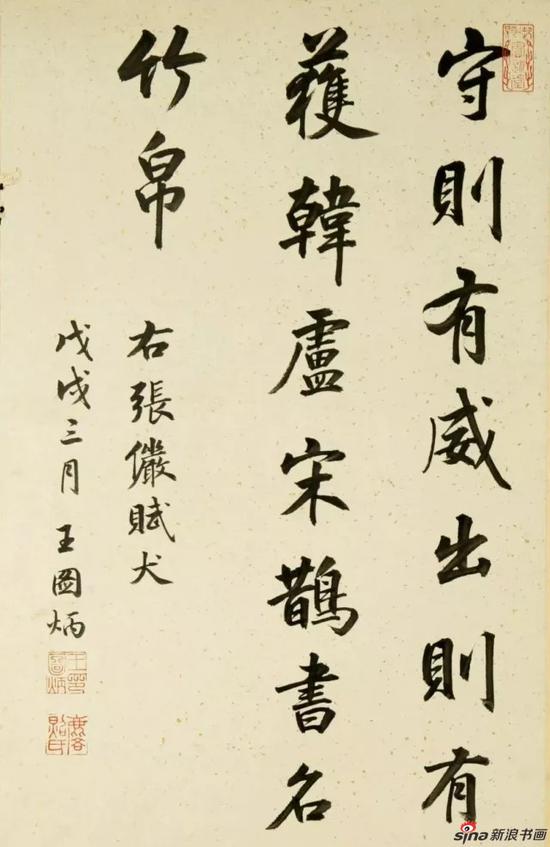 守則有威出則有
獲韓盧宋鵲書名
竹帛
右張儼賦犬
戊戌三月王圖炳
sina新浪书画